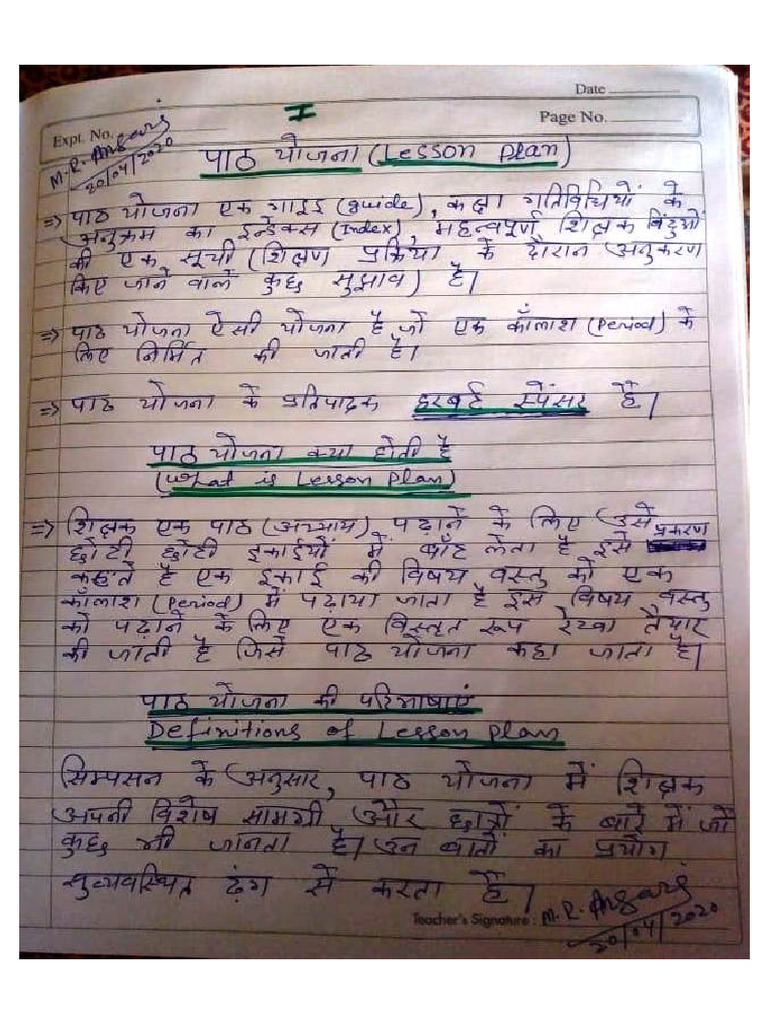 Date
I
Page No.
Expt. No.
M.R. Ansari
20/04/2020
पाठ योजना (Lesson plan)
=> पाठ योजना एक गाइड (guide), कक्षा गतिविधियों के
अनुक्रम का इन्डेक्स (Index), महत्वपूर्ण शिक्षक बिंदुओं
की एक सूची (शिक्षण प्रक्रिया के दौरान अनुकरण
किए जाने वाले कुछ सुझाव) है।
=> पाठ योजना ऐसी योजना है जो एक काँलाश (Period) के
लिए निर्मित की जाती है।
=> पाठ योजना के प्रतिपादक हरबर्ट स्पेंसर है।
पाठ योजना क्या होती है
(What is Lesson Plan)
=> शिक्षक एक पाठ (अध्याय) पढ़ाने के लिए उसे
छोटी छोटी इकाईयों में बाँट लेता है इसे प्रकरण
कहते है एक इकाई की विषय वस्तु को एक
काँलाश (Period) में पढ़ाया जाता है इस विषय वस्तु
को पढ़ाने के लिए एक विस्तृत रूप रेखा तैयार
की जाती है जिसे पाठ योजना कहा जाता है।
पाठ योजना की परिभाषाएं
Definitions of Lesson plan
सिम्पसन के अनुसार, पाठ योजना में शिक्षक
अपनी विशेष सामग्री और छात्रों के बारे में जो
कुछ भी जानता है। उन बातों का प्रयोग
सुव्यवस्थित ढ़ंग से करता है।
Teacher's Signature : M.R. Ansari
20/04/2020